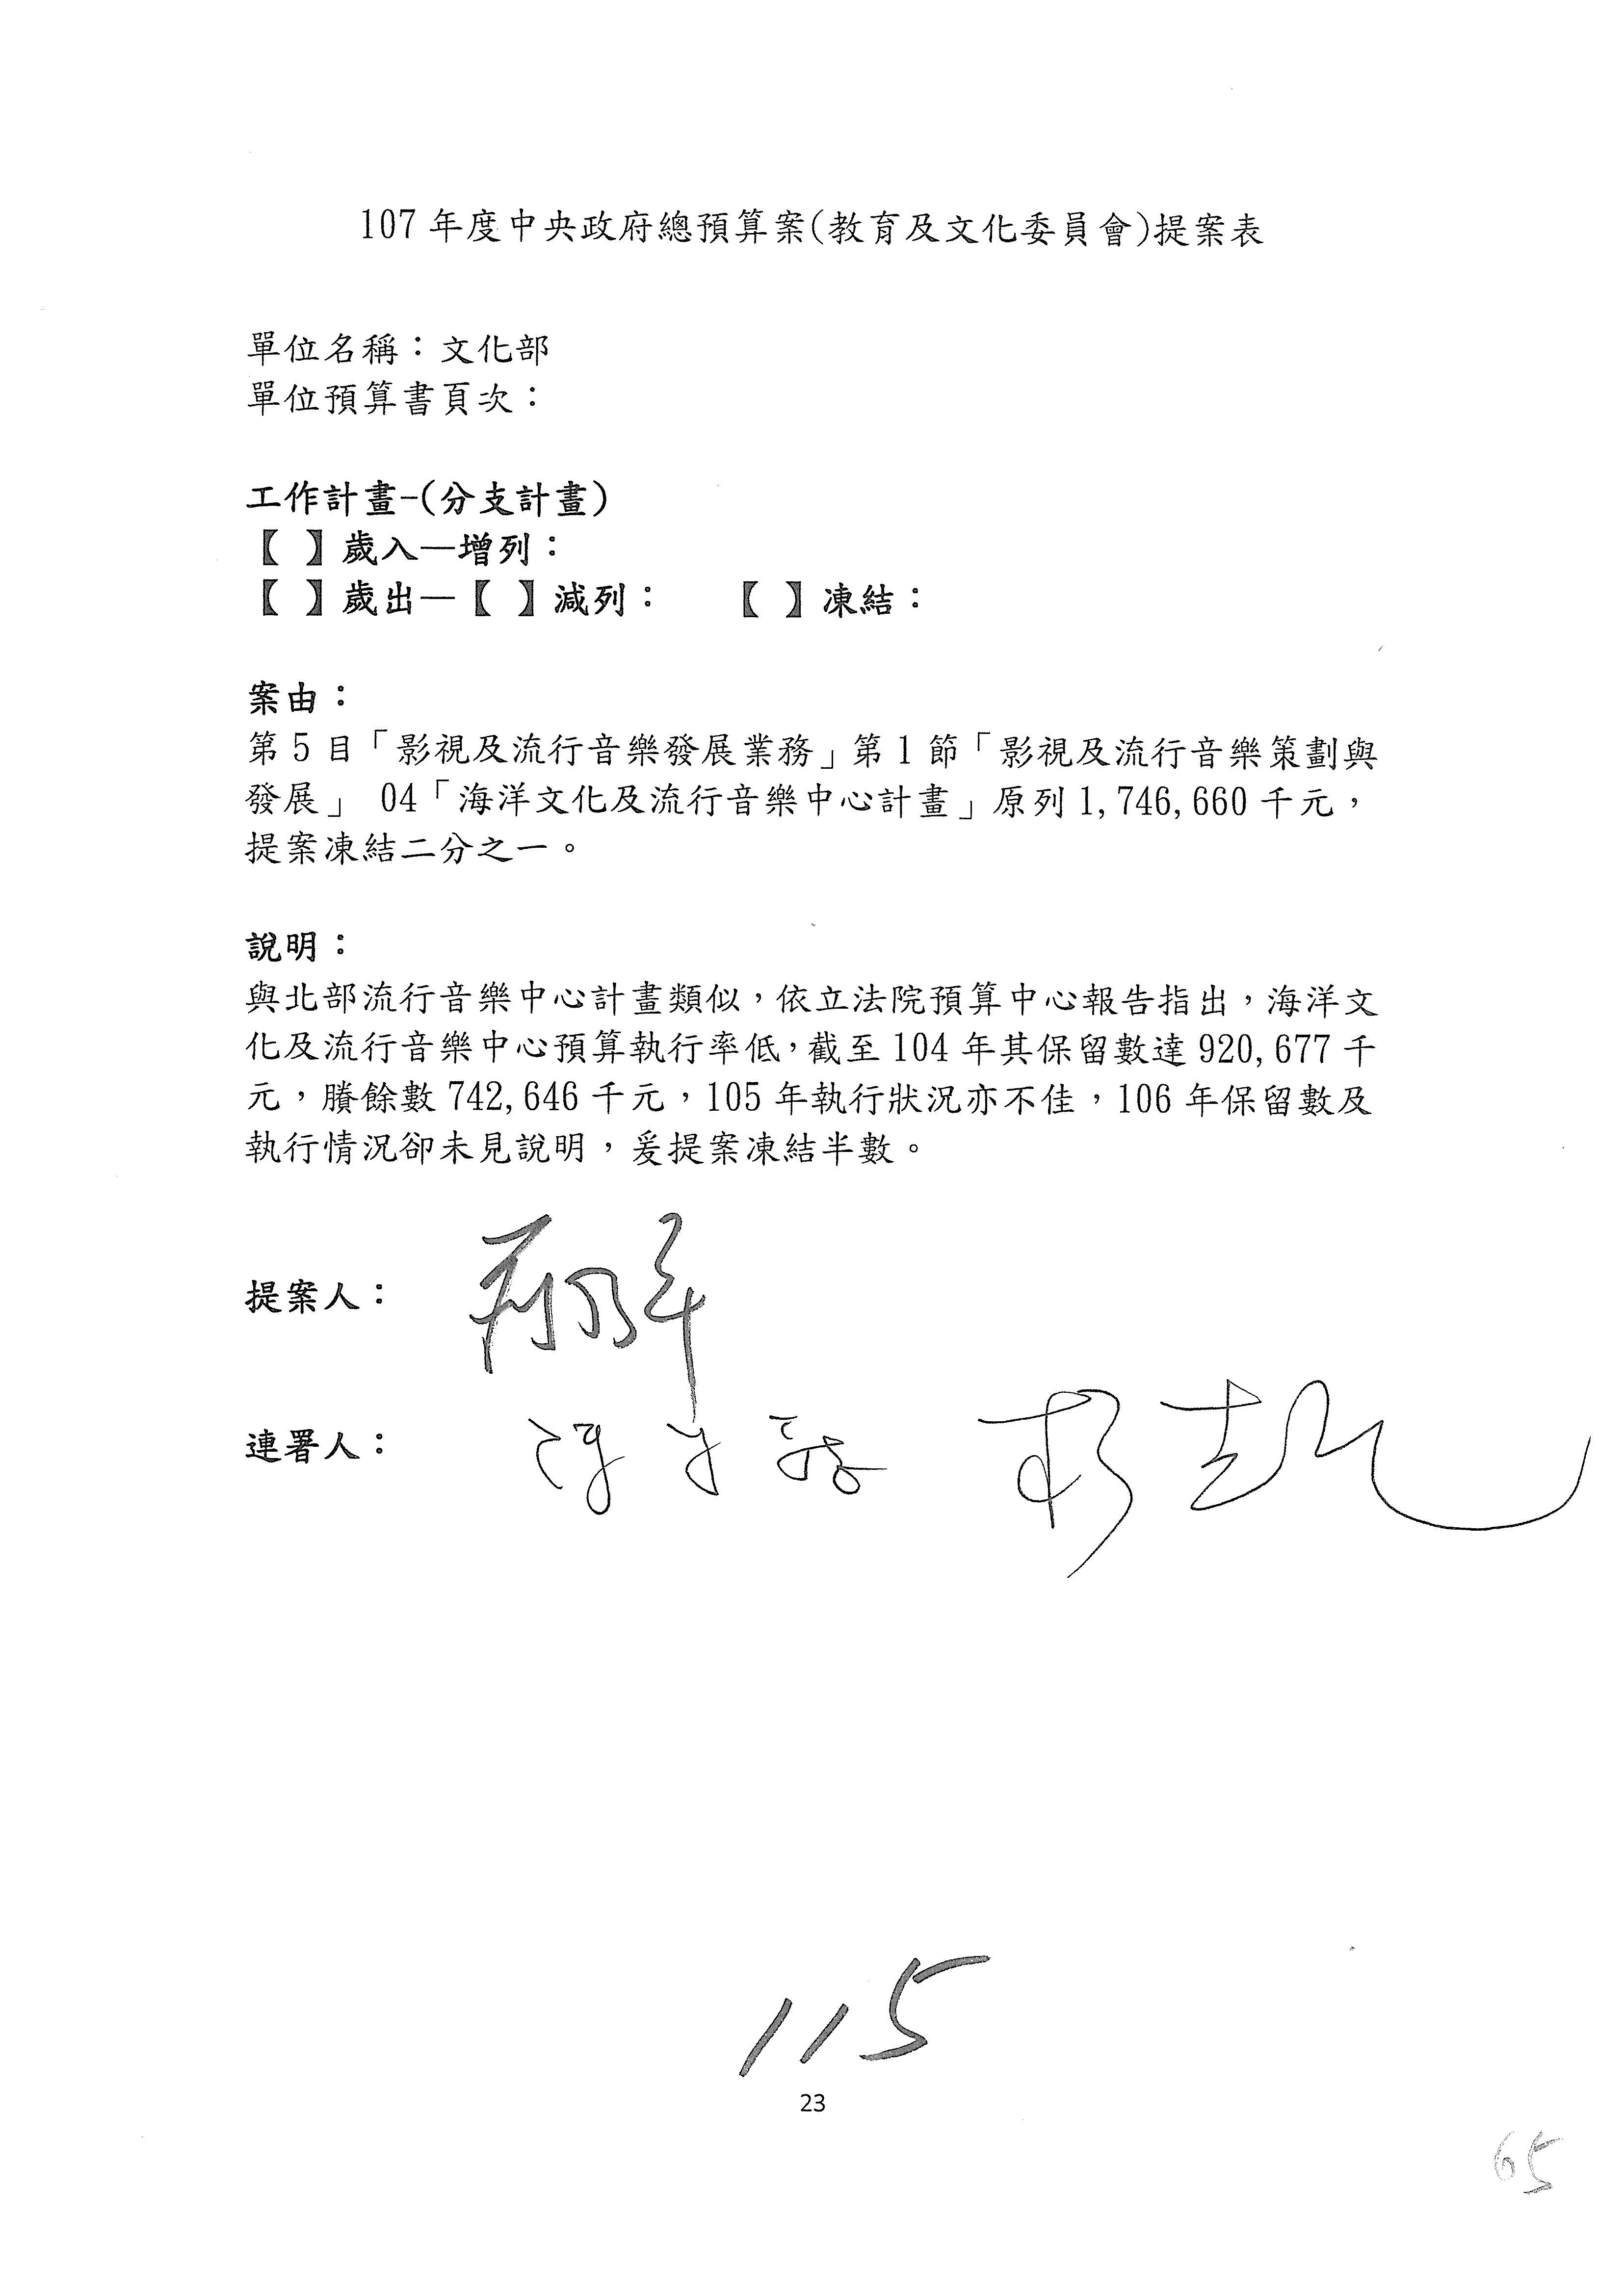 107 年度中央政府總預算案(教育及文化委員會)提案表
單位名稱：文化部
單位預算書頁次：
工作計畫-(分支計畫)
【 】歲入—增列：
【 】歲出—【 】減列： 【 】凍結：
案由：
第 5 目「影視及流行音樂發展業務」第 1 節「影視及流行音樂策劃與
發展」 04「海洋文化及流行音樂中心計畫」原列 1,746,660 千元，
提案凍結二分之一。
說明：
與北部流行音樂中心計畫類似，依立法院預算中心報告指出，海洋文
化及流行音樂中心預算執行率低，截至 104 年其保留數達 920,677 千
元，賸餘數 742,646 千元，105 年執行狀況亦不佳，106 年保留數及
執行情況卻未見說明，爰提案凍結半數。
提案人：
連署人：
115
23
65